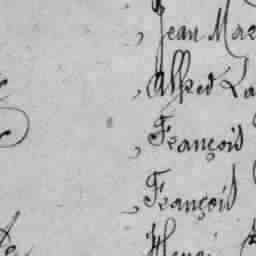 , Jean Mar
, Alfred La
, François
, François
Henri